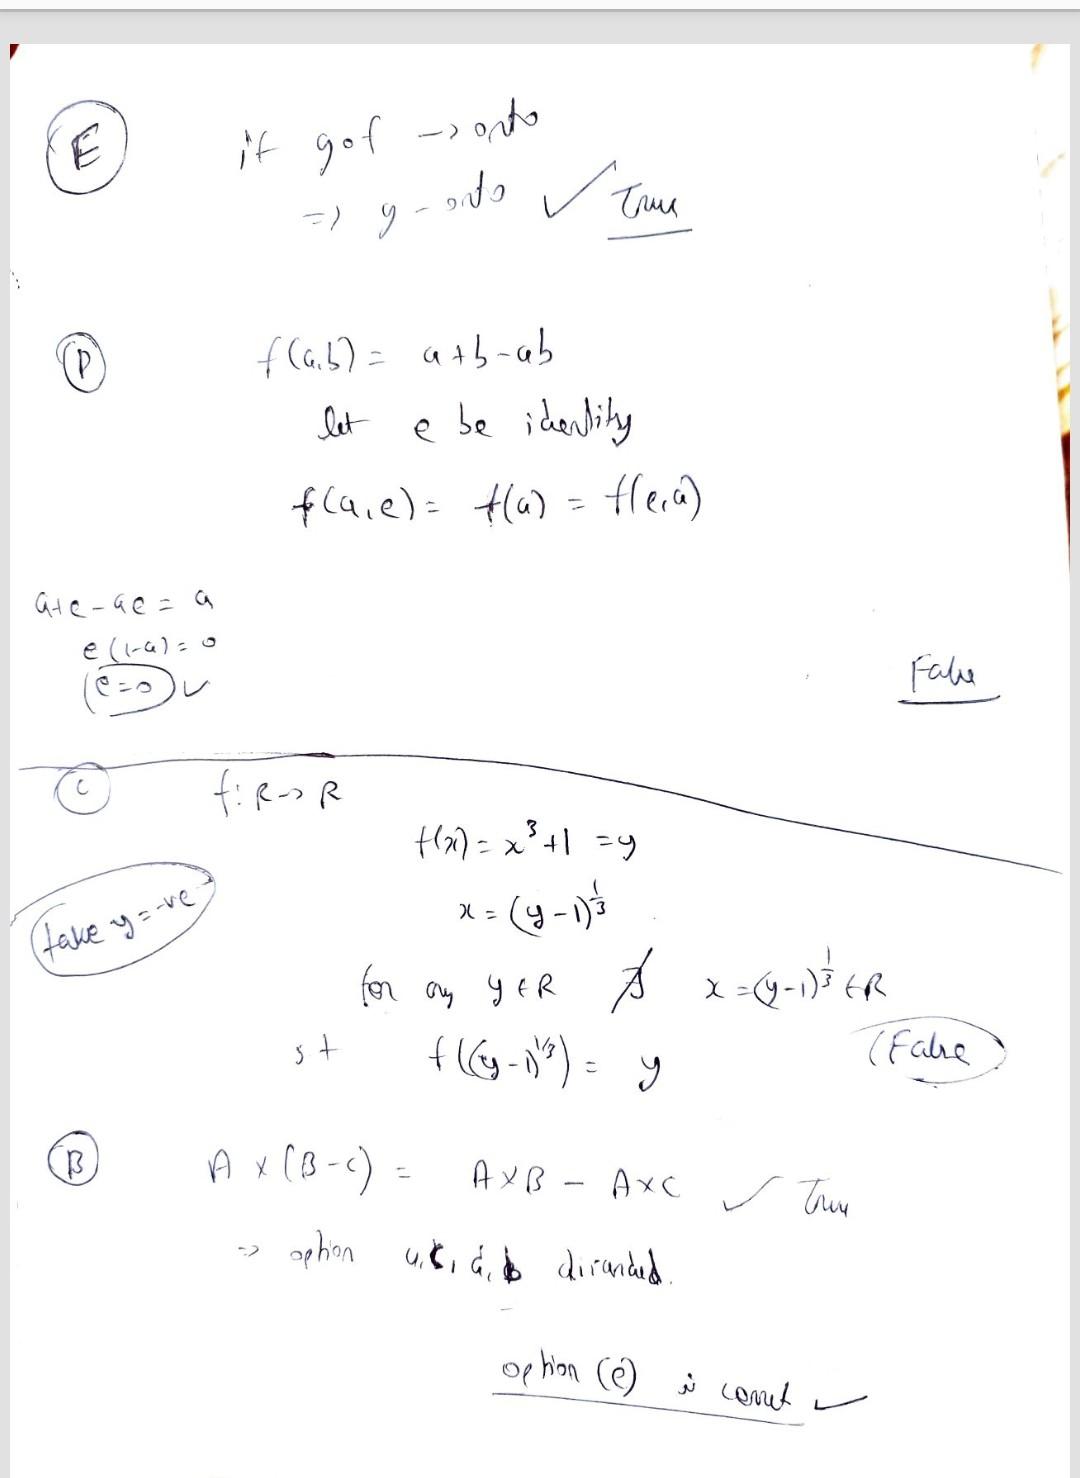 E
if gof → onto
=> g - onto ✓ True
D
f(a,b) = a+b-ab
let e be identity
f(a,e) = f(a) = f(e,a)
a+e-ae = a
e(1-a) = 0
(e=0) ✓
False
C
f: R → R
f(x) = x³+1 = y
x = (y-1)^1/3
take y = -ve
for any y ∈ R x = (y-1)^1/3 ∈ R
st f((y-1)^1/3) = y
(False)
B
A x (B-C) = AxB - AxC ✓ True
=> option discarded.
option (e) is correct ✓